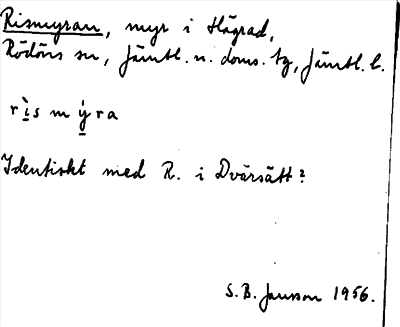 Rismyran, myr i Högrad,
Rödöns sn, Jämtl. n. doms. tg, Jämtl. l.
rìsmýra
Identiskt med R. i Dvärsätt?
S.B. Jansson 1956.